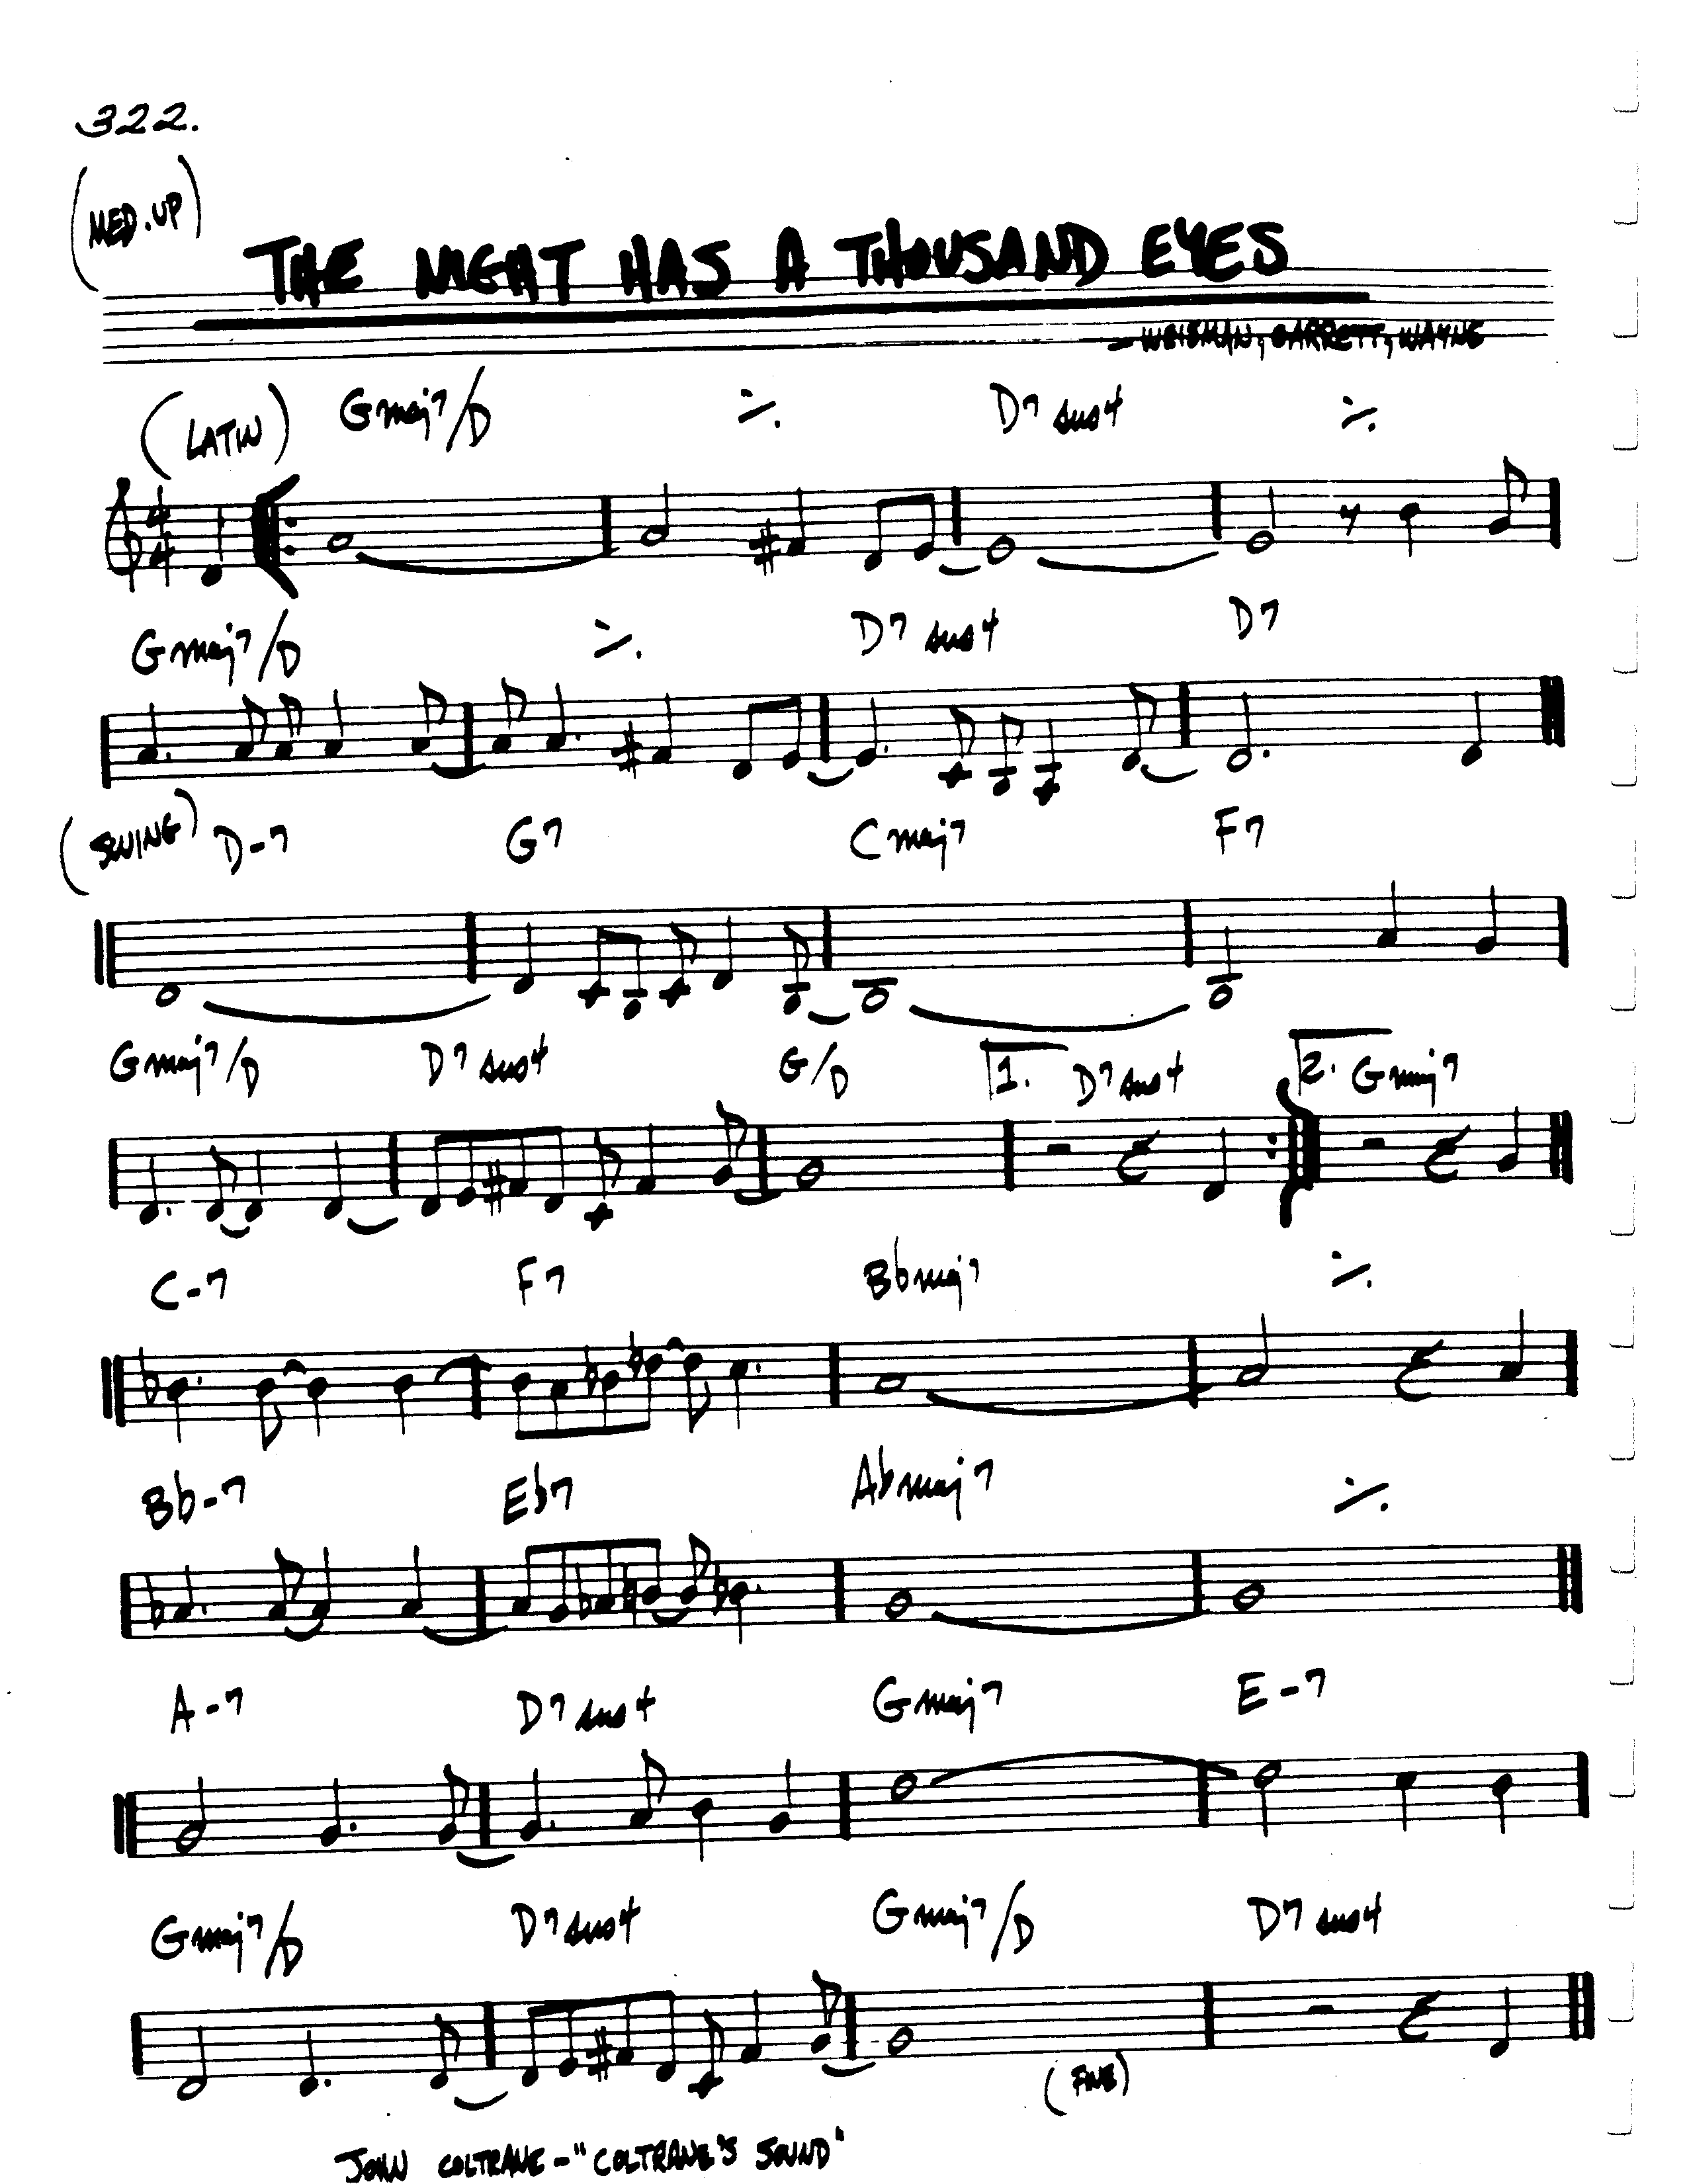 322.
(MED. UP)
THE NIGHT HAS A THOUSAND EYES
- WEISMAN, GARRETT, WAYNE
(LATIN) Gmaj7/D ٪ D7sus4 ٪
4/4
Gmaj7/D ٪ D7sus4 D7
(SWING) D-7 G7 Cmaj7 F7
Gmaj7/D D7sus4 G/D 1. D7sus4 2. Gmaj7
C-7 F7 Bbmaj7 ٪
Bb-7 Eb7 Abmaj7 ٪
A-7 D7sus4 Gmaj7 E-7
Gmaj7/D D7sus4 Gmaj7/D D7sus4
(FINE)
JOHN COLTRANE - "COLTRANE'S SOUND"